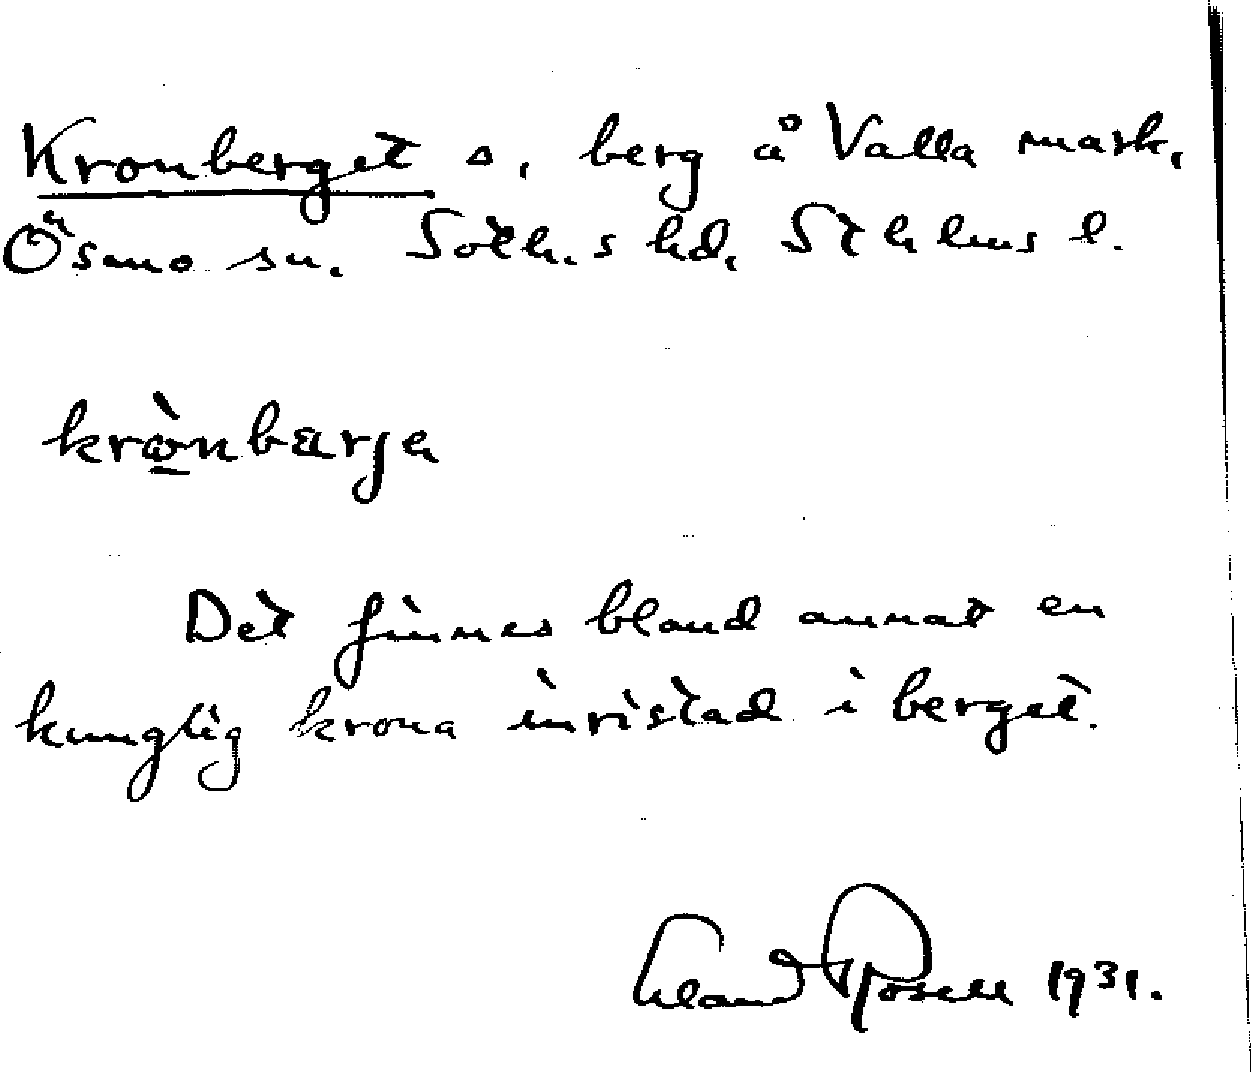 Kronberget s. berg å Valla mark,
Ösmo sn. Soth.s hd, Sthlms l.
krò̠nbærjə
Det finnes bland annat en
kunglig krona inristad i berget.
Rosell 1931.